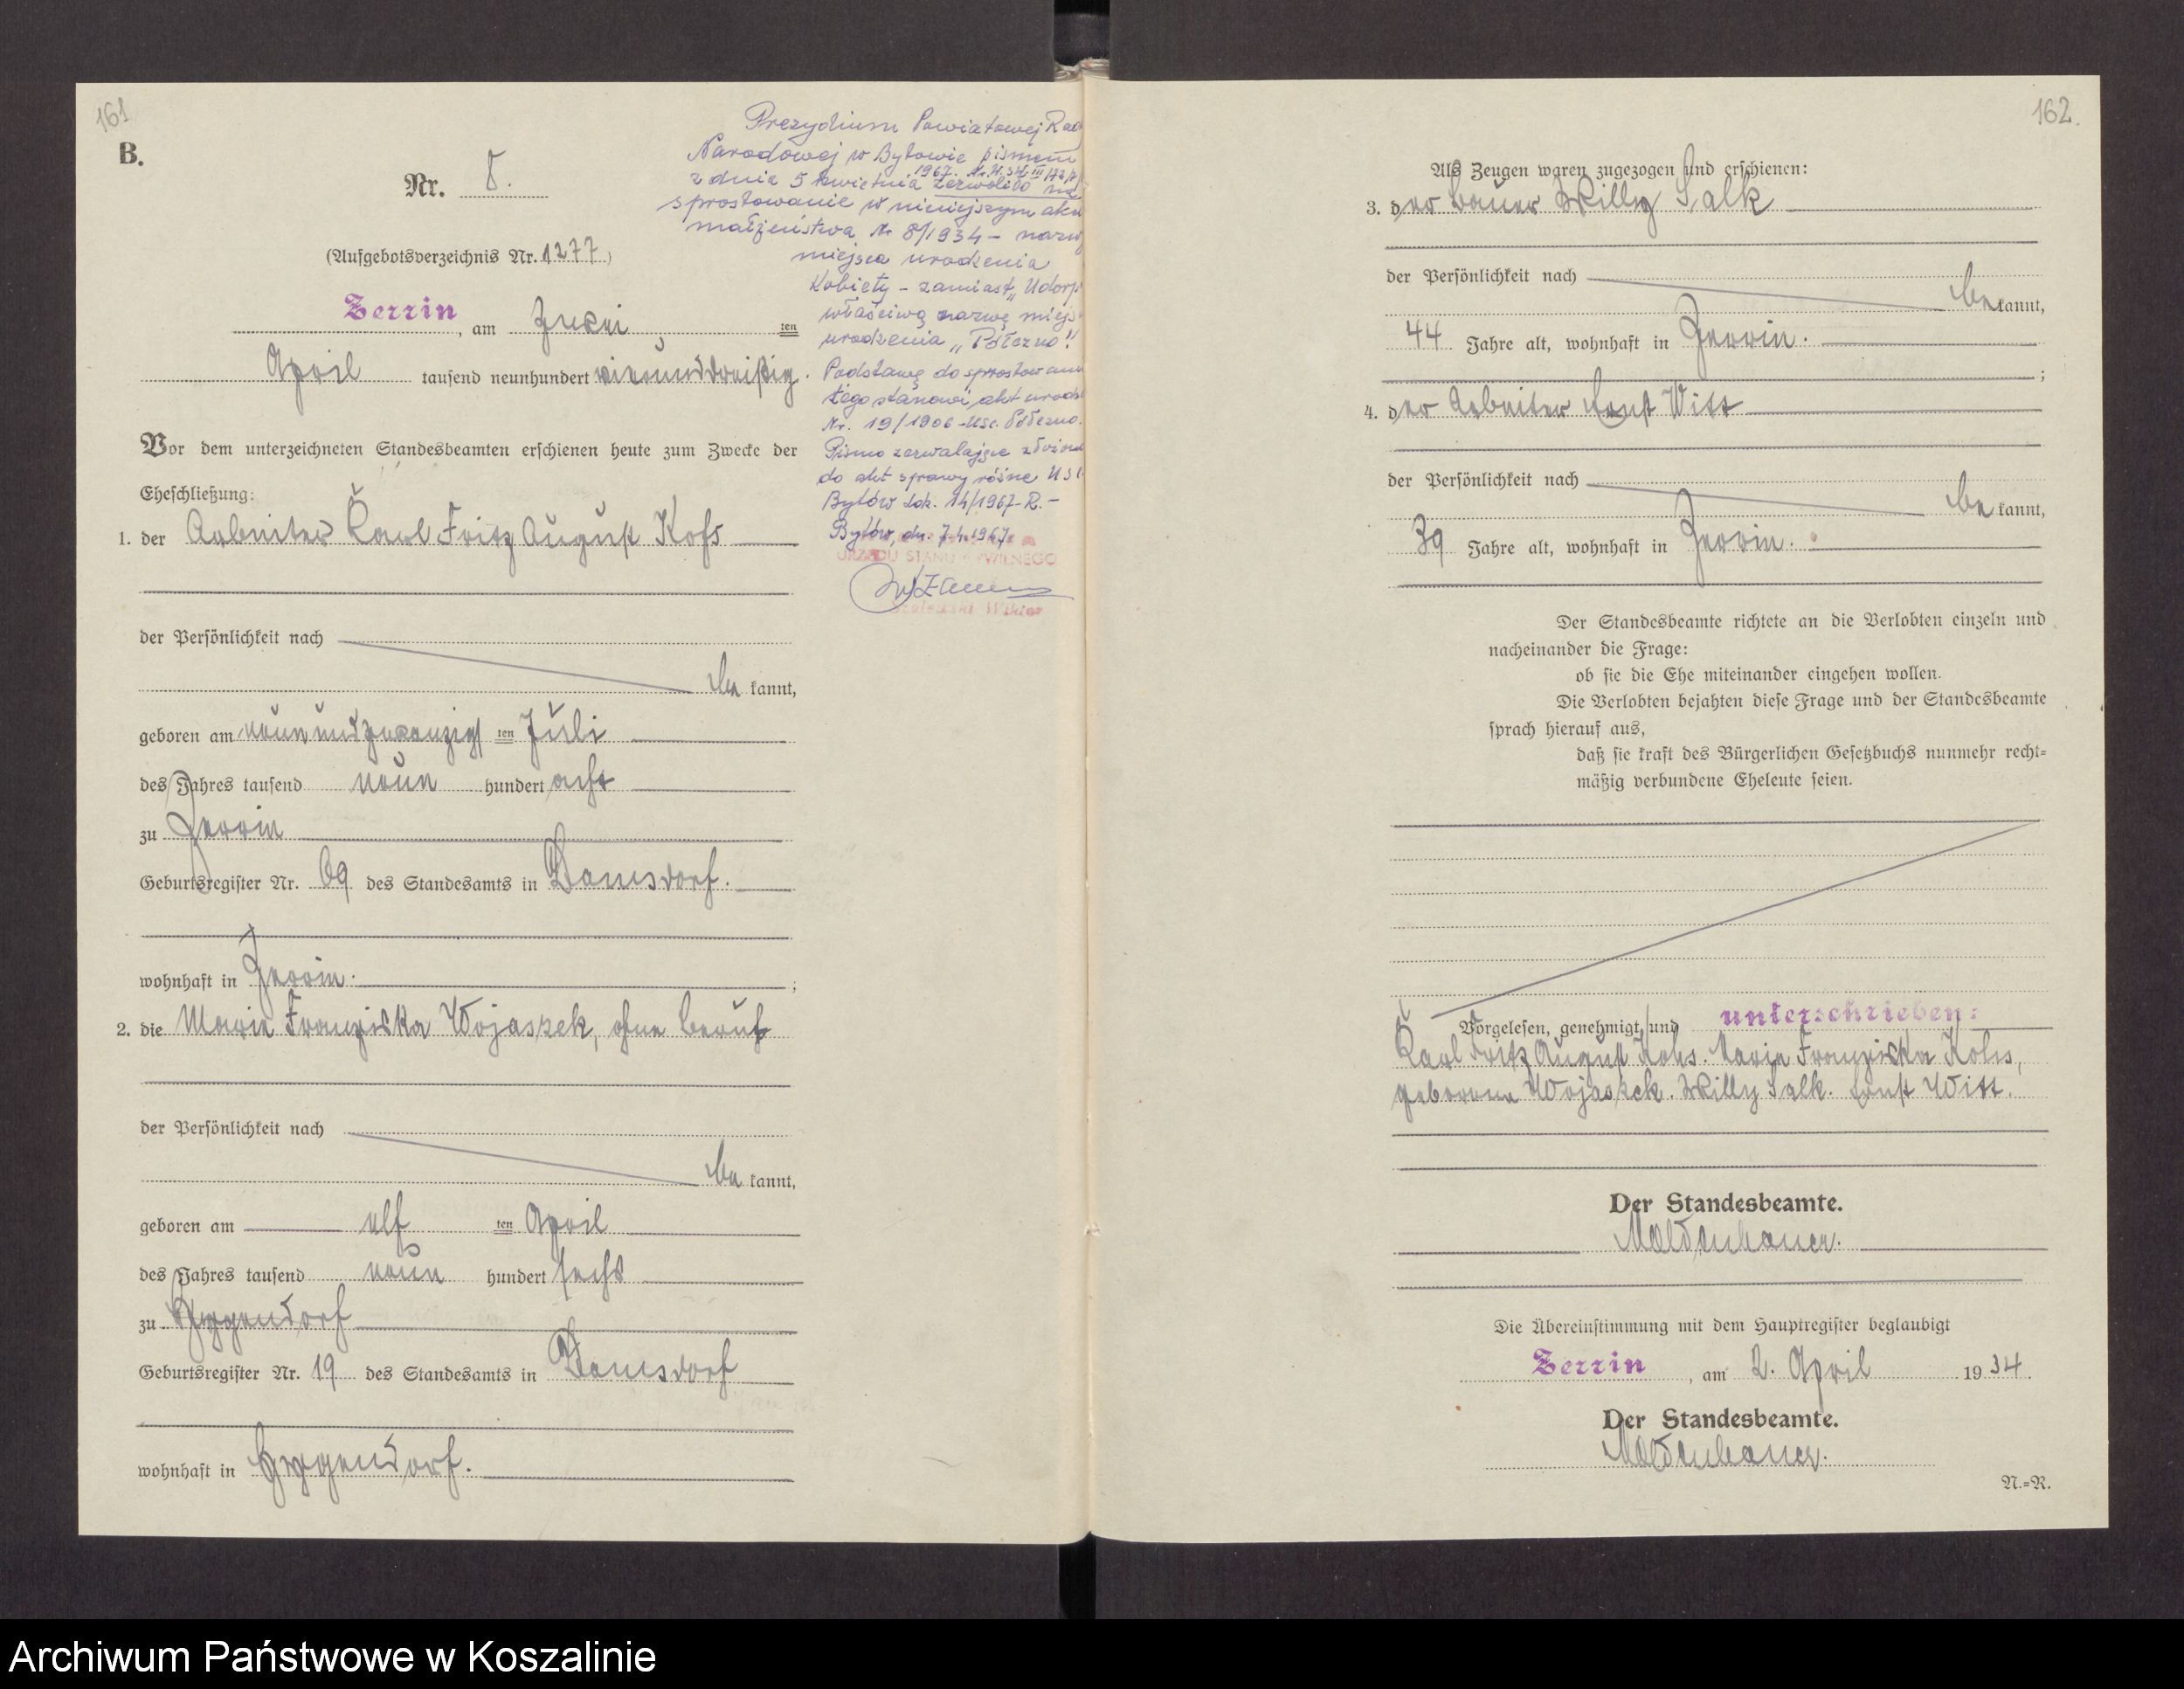 161
B.
Nr. 8.
(Aufgebotsverzeichnis Nr. 1277)
Zerrin, am zwei ten
April tausend neunhundert vierunddreißig.
Vor dem unterzeichneten Standesbeamten erschienen heute zum Zwecke der
Eheschließung:
1. der Arbeiter Karl Fritz August Kohs
der Persönlichkeit nach
be kannt,
geboren am neunundzwanzig ten Juli
des Jahres tausend neun hundert acht
zu Zerrin
Geburtsregister Nr. 69 des Standesamts in Damsdorf.
wohnhaft in Zerrin. ;
2. die Marie Franziska Wojaszek, ohne Beruf
der Persönlichkeit nach
be kannt,
geboren am elf ten April
des Jahres tausend neun hundert sechs
zu
Geburtsregister Nr. 19 des Standesamts in Damsdorf
wohnhaft in
Prezydium Powiatowej Rad
Narodowej w Bytowie pismem
z dnia 5 kwietnia 1967. zezwoliło na
sprostowanie w niniejszym akci
małżeństwa Nr 8/1934 – nazw
miejsca urodzenia
Kobiety – zamiast „Udorp
właściwą nazwę miejs
urodzenia „Półczno".
Podstawę do sprostowani
tego stanowi akt urodz
Nr. 19/1906 – Usc. Półczno.
Pismo zezwalające złożono
do akt sprawy różne USC
Bytów Lok. 14/1967-R. –
Bytów, dn. 7.4.1967
URZĘDU STANU CYWILNEGO
Wiktor
162.
Als Zeugen waren zugezogen und erschienen:
3. der Bauer Willy Salk
der Persönlichkeit nach
be kannt,
44 Jahre alt, wohnhaft in Zerrin.
;
4. der Arbeiter Ernst Witt
der Persönlichkeit nach
be kannt,
39 Jahre alt, wohnhaft in Zerrin.
Der Standesbeamte richtete an die Verlobten einzeln und
nacheinander die Frage:
ob sie die Ehe miteinander eingehen wollen.
Die Verlobten bejahten diese Frage und der Standesbeamte
sprach hierauf aus,
daß sie kraft des Bürgerlichen Gesetzbuchs nunmehr recht-
mäßig verbundene Eheleute seien.
Vorgelesen, genehmigt und unterschrieben:
Karl Fritz August Kohs. Marie Franziska Kohs,
geborene Wojaszek. Willy Salk. Ernst Witt.
Der Standesbeamte.
Moldenhauer.
Die Übereinstimmung mit dem Hauptregister beglaubigt
Zerrin, am 2. April 1934.
Der Standesbeamte.
Moldenhauer.
N.-R.
Archiwum Państwowe w Koszalinie